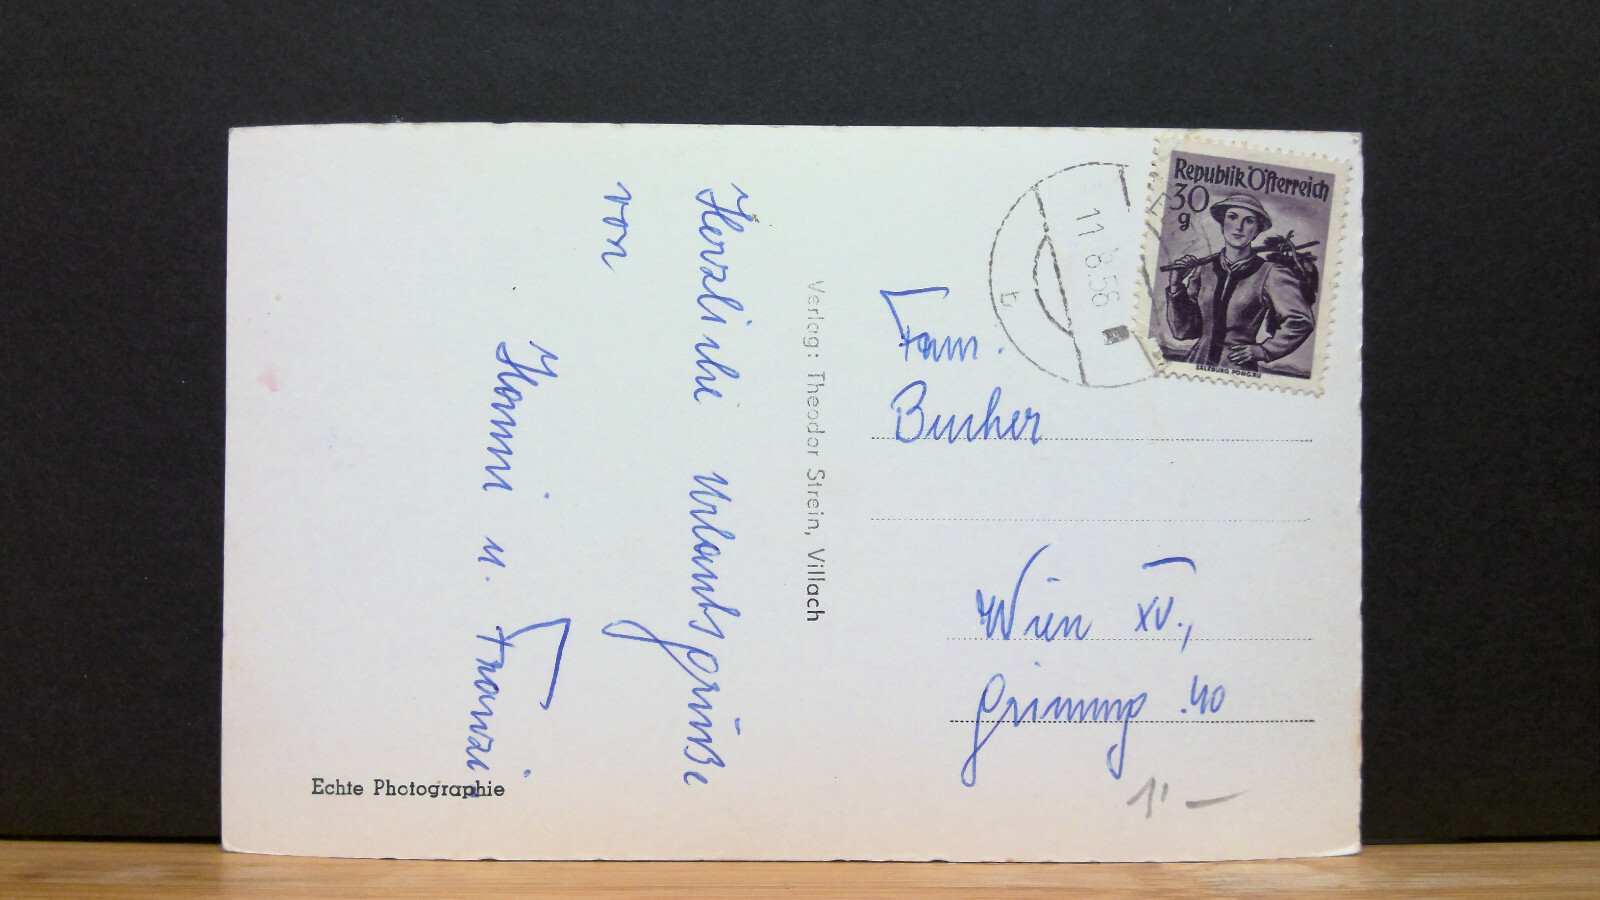 Herzliche Urlaubsgrüße
von
Hanni u. Franzi
Echte Photographie
Verlag: Theodor Strein, Villach
Republik Österreich
30
g
SALZBURG PONGAU
11.8.56
b
Fam.
Bucher
Wien XV.,
40
1'-